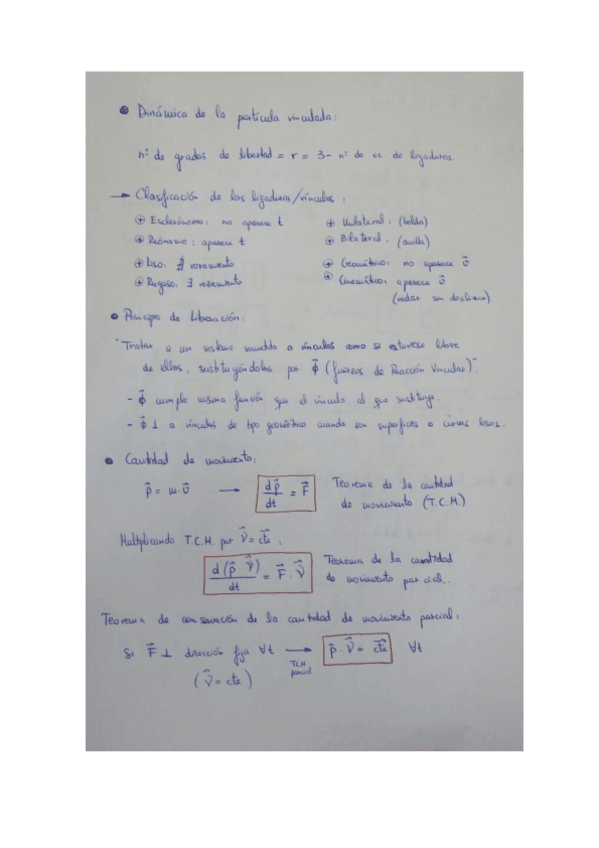 Dinámica de la partícula vinculada:
nº de grados de libertad = r = 3 - nº de ec. de ligaduras.
→ Clasificación de las ligaduras/vínculos:
⊕ Esclerónomo: no aparece t
⊕ Reónomo: aparece t
⊕ Liso: ∄ rozamiento
⊕ Rugoso: ∃ rozamiento
⊕ Unilateral: (bolita)
⊕ Bilateral: (anilla)
⊕ Geométrico: no aparece v⃗
⊕ Cinemático: aparece v⃗
(rodar sin deslizar)
Principio de Liberación:
"Tratar a un sistema sometido a vínculos como si estuviese libre
de ellos, sustituyéndolos por ϕ⃗ (fuerzas de Reacción Vincular)".
- ϕ⃗ cumple misma función que el vínculo al que sustituye.
- ϕ⃗ ⊥ a vínculos de tipo geométrico cuando son superficies o curvas lisas.
Cantidad de movimiento:
p⃗ = m·v⃗ → dp⃗/dt = F⃗ Teorema de la cantidad
de movimiento (T.C.M.)
Multiplicando T.C.M. por ν⃗ = cte⃗:
d(p⃗·ν⃗)/dt = F⃗·ν⃗ Teorema de la cantidad
de movimiento parcial.
Teorema de conservación de la cantidad de movimiento parcial:
Si F⃗ ⊥ dirección fija ∀t → p⃗·ν⃗ = cte⃗ ∀t
TCM
parcial
(ν⃗ = cte)